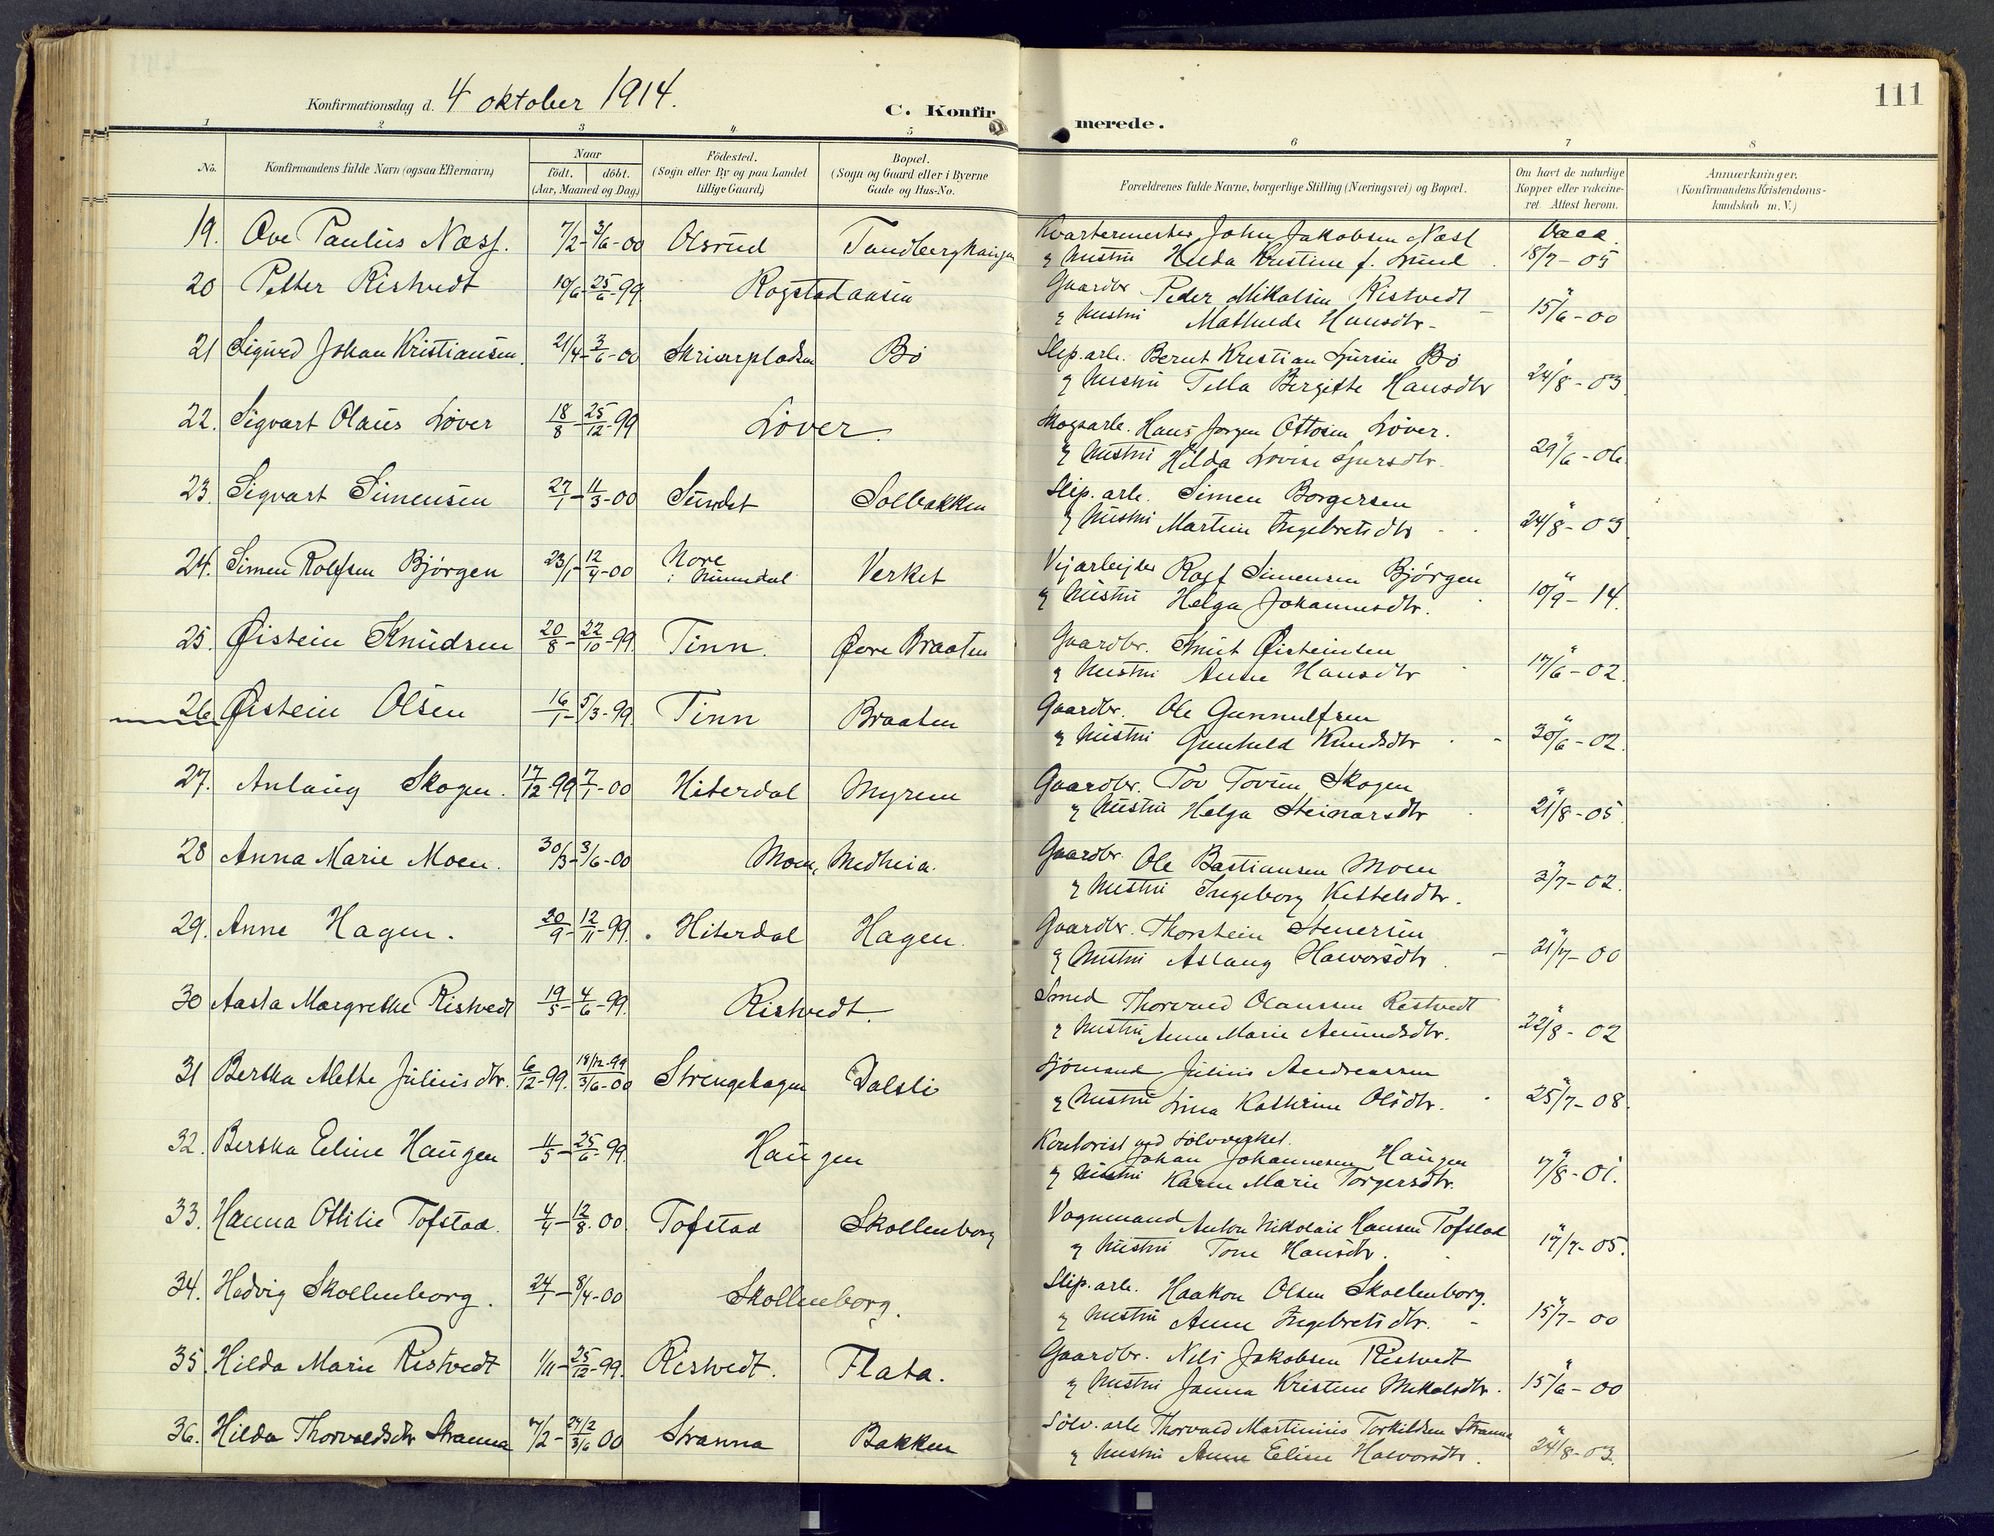 111
Konfirmationsdag d. 4 oktober 1914.
C. Konfirmerede.
1 2 3 4 5 6 7 8
No. Konfirmandens fulde Navn (ogsaa Efternavn) Naar født. døbt. (Aar, Maaned og Dag.) Födested. (Sogn eller By og paa Landet tillige Gaard.) Bopæl. (Sogn og Gaard eller i Byerne Gade og Hus-No. Forældrenes fulde Navne, borgerlige Stilling (Næringsvei) og Bopæl. Om havt de naturlige Kopper eller vakcineret Attest herom. Anmærkninger. (Konfirmandens Kristendomskundskab m. V.)
19. Ove Paulus Næss. 7/2 - 3/6 - 00 Olsrud Tandberghaugen Kvartermester John Jakobsen Næss Vacc.
& Hustru Hilda Kristine f. Lund 18/7 - 05
20 Petter Ristvedt 10/6 - 25/6 - 99 Rogstadaasen Gaardbr. Peder Mikalsen Ristvedt "
& Hustru Mathilde Hansdtr - 15/6 - 00
21 Sigurd Johan Kristiansen. 21/4 - 3/6 - 00 Skriverpladsen Bö Slip.arb. Bernt Kristian Sjursen Bö
& Hustru Tilla Bergitte Hansdtr 24/8 - 03
22. Sigvart Olaus Löver 18/8 - 25/12 - 99 Löver. Skogsarb. Hans Jørgen Ottosen Löver.
& Hustru Hilda Lovise Sjursdtr. 29/6 - 06.
23. Sigvart Simensen 27/1 - 11/3 - 00 Sundet Solbakken Slip. arb. Simen Borgersen
& Hustru Martine Ingebretsdtr 24/8 - 03
24. Simen Rolfsen Bjørgen 23/1 - 12/4 - 00 Nore i Numedal Verket Vejarbejder Rolf Simensen Bjørgen
& Hustru Helga Johannesdtr. 10/9 - 14.
25. Øistein Knudsen 20/8 - 22/10 - 99. Tinn. Øvre Braaten Gaardbr. Knut Øisteinsen
& Hustru Anne Hansdtr 17/6 - 02.
26. Øistein Olsen 16/1 - 5/3 - 99. Tinn Braaten Gaardbr. Ole Gunnulfsen
& Hustru Gunhild Knudsdtr 30/6 - 02.
27. Anlaug Skogen. 17/12 - 99 7/1 - 00 Hiterdal Myrene Gaardbr. Tov Tovsen Skogen
& Hustru Helga Steinarsdtr 21/8 - 05.
28 Anna Marie Moen. 30/3 - 3/6 - 00 Moen, Medheia. Gaardbr. Ole Bastiansen Moen
& Hustru Ingeborg Kittelsdtr. 3/7 - 02.
29. Anne Hagen. 20/9 - 12/11 - 99. Hiterdal Hagen. Gaardbr. Thorstein Stenersen
& Hustru Aslaug Halvorsdtr. 21/7 - 00
30 Aasta Margrethe Ristvedt 19/5 - 4/6 - 99. Ristvedt. Smed Thorvald Olaussen Ristvedt
& Hustru Anna Marie Amundsdtr. 22/8 - 02
31 Bertha Alette Juliusdtr. 6/12 - 99. 18/12 - 99 3/6 - 00 Strengehagen Dalsli Sjømand Julius Andreassen
& Hustru Lina Kathrine Olsdtr. 25/7 - 08.
32. Bertha Eline Haugen 11/5 - 25/6 - 99. Haugen Kontorist ved Sølvverket.
Johan Johannesen Haugen
& Hustru Karen Marie Torgersdtr. 7/8 - 01.
33. Hanna Otilie Tofstad. 4/4 - 12/8. 00. Tofstad Skollenborg Vognmand Anton Nikolai Hansen Tofstad
& Hustru Tone Hansdtr. 17/7 - 05.
34. Hedvig Skollenborg. 24/1 - 8/4 - 00 Skollenborg. Slip. arb. Haakon Olsen Skollenborg.
& Hustru Anne Ingebretsdtr. - 15/7 - 00
35. Hilda Marie Ristvedt 1/11 - 25/12 - 99. Ristvedt. Flata. Gaardbr. Nils Jakobsen Ristvedt
& Hustru Janna Kristine Mikalsdtr. 15/6 - 00
36. Hilda Thorvaldsdtr Stranna 7/2 - 24/2 3/6 00 Stranna Bakken Sölv. arb Thorvald Martinius Torkildsen Stranna
& Hustru Anne Eline Halvorsdtr. 24/8 - 03.